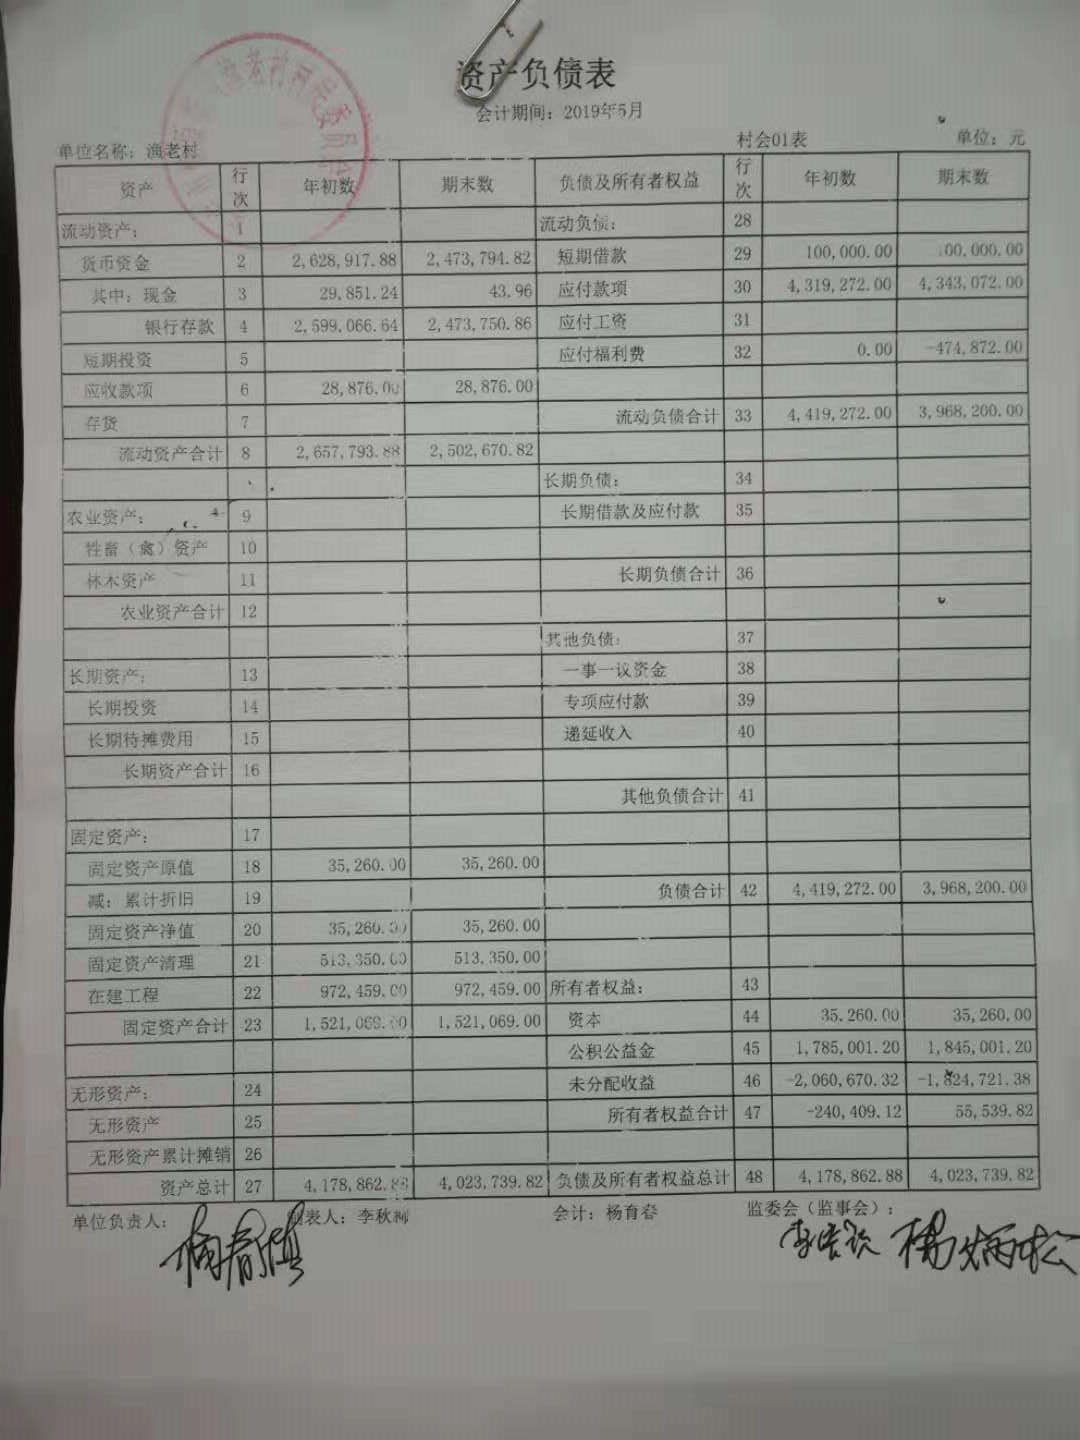 资产负债表
会计期间：2019年5月
单位名称：渔老村 村会01表 单位：元
资产 行次 年初数 期末数 负债及所有者权益 行次 年初数 期末数
流动资产： 1 流动负债： 28
货币资金 2 2,628,917.88 2,473,794.82 短期借款 29 100,000.00 100,000.00
其中：现金 3 29,851.24 43.96 应付款项 30 4,319,272.00 4,343,072.00
银行存款 4 2,599,066.64 2,473,750.86 应付工资 31
短期投资 5 应付福利费 32 0.00 -474,872.00
应收款项 6 28,876.00 28,876.00
存货 7 流动负债合计 33 4,419,272.00 3,968,200.00
流动资产合计 8 2,657,793.88 2,502,670.82
长期负债： 34
农业资产： 9 长期借款及应付款 35
牲畜（禽）资产 10
林木资产 11 长期负债合计 36
农业资产合计 12
其他负债： 37
长期资产： 13 一事一议资金 38
长期投资 14 专项应付款 39
长期待摊费用 15 递延收入 40
长期资产合计 16
其他负债合计 41
固定资产： 17
固定资产原值 18 35,260.00 35,260.00
减：累计折旧 19 负债合计 42 4,419,272.00 3,968,200.00
固定资产净值 20 35,260.00 35,260.00
固定资产清理 21 513,350.00 513,350.00
在建工程 22 972,459.00 972,459.00 所有者权益： 43
固定资产合计 23 1,521,069.00 1,521,069.00 资本 44 35,260.00 35,260.00
公积公益金 45 1,785,001.20 1,845,001.20
无形资产： 24 未分配收益 46 -2,060,670.32 -1,824,721.38
无形资产 25 所有者权益合计 47 -240,409.12 55,539.82
无形资产累计摊销 26
资产总计 27 4,178,862.88 4,023,739.82 负债及所有者权益总计 48 4,178,862.88 4,023,739.82
单位负责人： 制表人：李秋 会计：杨育春 监委会（监事会）：
杨炳松